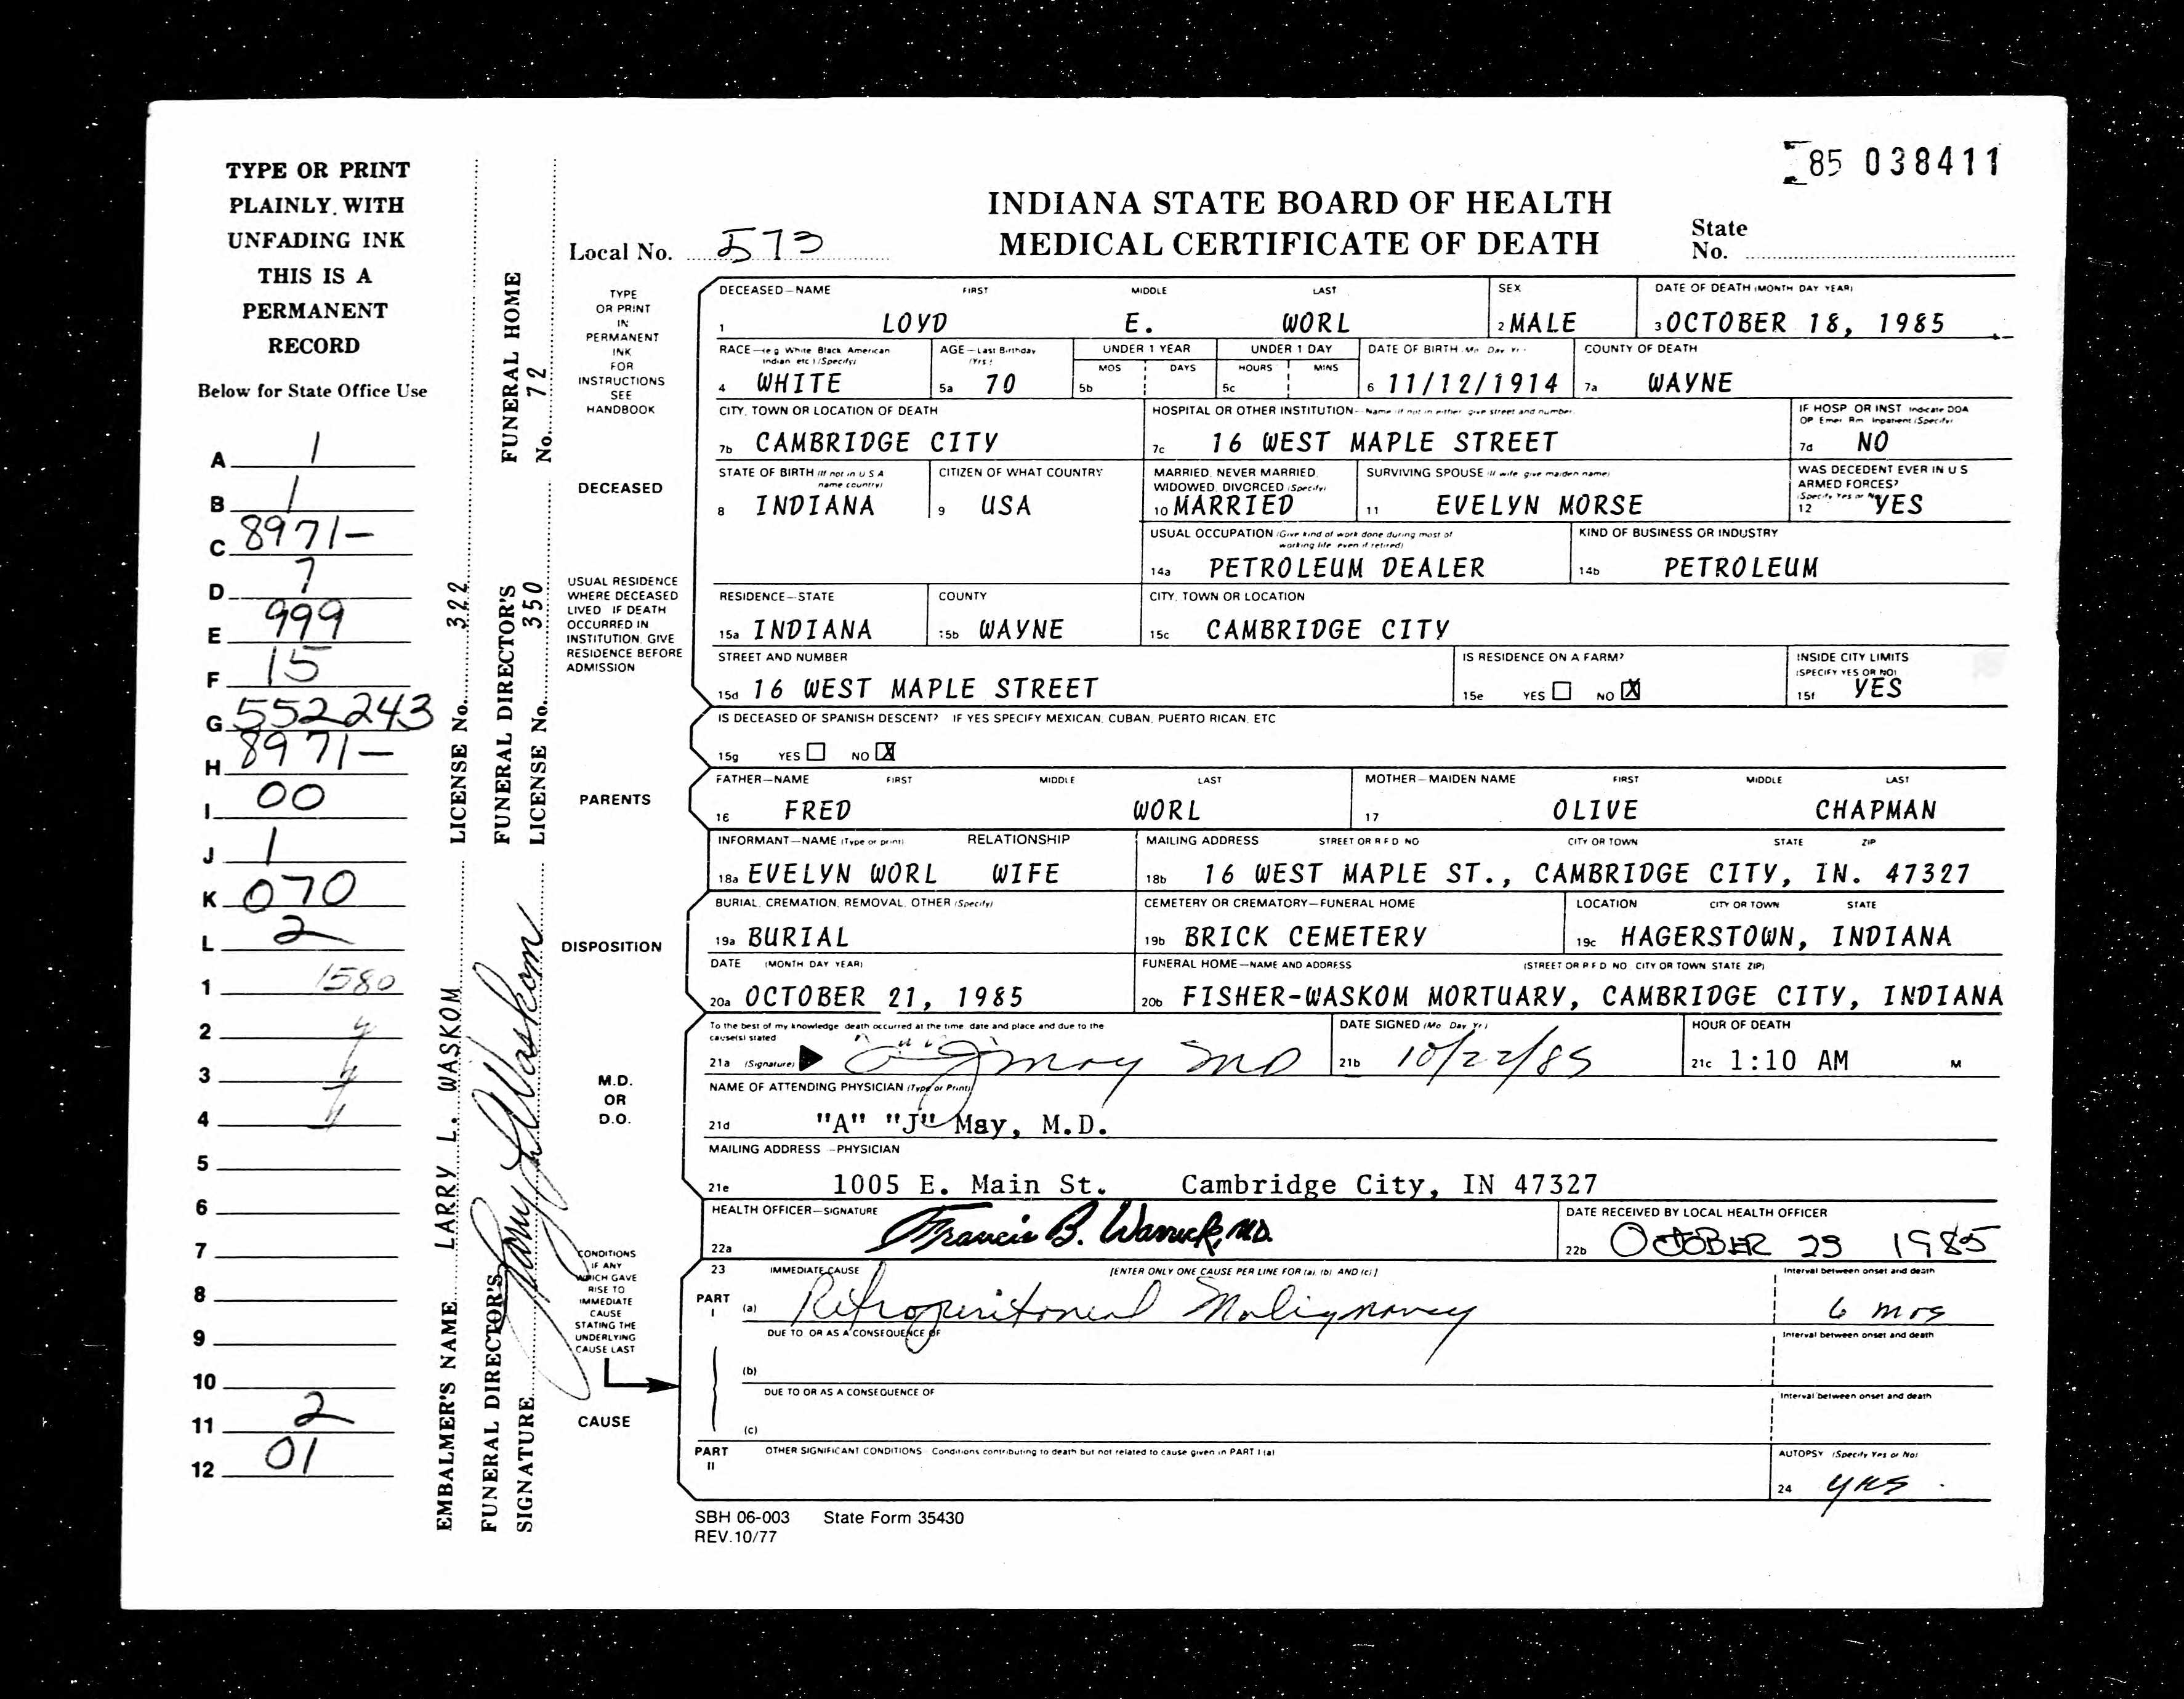 TYPE OR PRINT
PLAINLY, WITH
UNFADING INK
THIS IS A
PERMANENT
RECORD
Below for State Office Use
A 1
B 1
C 8971-
D 7
E 999
F 15
G 552243
H 8971-
I 00
J 1
K 070
L 2
1 1580
2
3
4
5
6
7
8
9
10
11 2
12 01
EMBALMER'S NAME LARRY L. WASKOM LICENSE No. 322
FUNERAL DIRECTOR'S FUNERAL DIRECTOR'S FUNERAL HOME
SIGNATURE LICENSE No. 350 No. 72
85 038411
INDIANA STATE BOARD OF HEALTH
MEDICAL CERTIFICATE OF DEATH
Local No. 573
State
No.
TYPE
OR PRINT
IN
PERMANENT
INK
FOR
INSTRUCTIONS
SEE
HANDBOOK
DECEASED
DECEASED—NAME FIRST MIDDLE LAST SEX DATE OF DEATH (MONTH DAY YEAR)
1 LOYD E. WORL 2 MALE 3 OCTOBER 18, 1985
RACE—(e g White Black American Indian etc) (Specify) AGE—Last Birthday (Yrs) UNDER 1 YEAR UNDER 1 DAY DATE OF BIRTH (Mo Day Yr) COUNTY OF DEATH
MOS DAYS HOURS MINS
4 WHITE 5a 70 5b 5c 6 11/12/1914 7a WAYNE
CITY, TOWN OR LOCATION OF DEATH HOSPITAL OR OTHER INSTITUTION—Name (If not in either give street and number) IF HOSP OR INST Indicate DOA OP Emer Rm Inpatient (Specify)
7b CAMBRIDGE CITY 7c 16 WEST MAPLE STREET 7d NO
STATE OF BIRTH (If not in U S A name country) CITIZEN OF WHAT COUNTRY MARRIED, NEVER MARRIED, WIDOWED, DIVORCED (Specify) SURVIVING SPOUSE (If wife give maiden name) WAS DECEDENT EVER IN U S ARMED FORCES? (Specify Yes or No)
8 INDIANA 9 USA 10 MARRIED 11 EVELYN MORSE 12 YES
USUAL OCCUPATION (Give kind of work done during most of working life even if retired) KIND OF BUSINESS OR INDUSTRY
14a PETROLEUM DEALER 14b PETROLEUM
USUAL RESIDENCE
WHERE DECEASED
LIVED IF DEATH
OCCURRED IN
INSTITUTION, GIVE
RESIDENCE BEFORE
ADMISSION
RESIDENCE—STATE COUNTY CITY, TOWN OR LOCATION
15a INDIANA 15b WAYNE 15c CAMBRIDGE CITY
STREET AND NUMBER IS RESIDENCE ON A FARM? INSIDE CITY LIMITS (SPECIFY YES OR NO)
15d 16 WEST MAPLE STREET 15e YES NO X 15f YES
IS DECEASED OF SPANISH DESCENT? IF YES SPECIFY MEXICAN, CUBAN, PUERTO RICAN, ETC
15g YES NO X
PARENTS
FATHER—NAME FIRST MIDDLE LAST MOTHER—MAIDEN NAME FIRST MIDDLE LAST
16 FRED WORL 17 OLIVE CHAPMAN
INFORMANT—NAME (Type or print) RELATIONSHIP MAILING ADDRESS STREET OR R F D NO CITY OR TOWN STATE ZIP
18a EVELYN WORL WIFE 18b 16 WEST MAPLE ST., CAMBRIDGE CITY, IN. 47327
DISPOSITION
BURIAL, CREMATION, REMOVAL, OTHER (Specify) CEMETERY OR CREMATORY—FUNERAL HOME LOCATION CITY OR TOWN STATE
19a BURIAL 19b BRICK CEMETERY 19c HAGERSTOWN, INDIANA
DATE (MONTH DAY YEAR) FUNERAL HOME—NAME AND ADDRESS (STREET OR R F D NO CITY OR TOWN STATE ZIP)
20a OCTOBER 21, 1985 20b FISHER-WASKOM MORTUARY, CAMBRIDGE CITY, INDIANA
M.D.
OR
D.O.
To the best of my knowledge death occurred at the time date and place and due to the cause(s) stated DATE SIGNED (Mo Day Yr) HOUR OF DEATH
21a (Signature) May MD 21b 10/22/85 21c 1:10 AM M
NAME OF ATTENDING PHYSICIAN (Type or Print)
21d "A" "J" May, M.D.
MAILING ADDRESS —PHYSICIAN
21e 1005 E. Main St. Cambridge City, IN 47327
HEALTH OFFICER—SIGNATURE DATE RECEIVED BY LOCAL HEALTH OFFICER
22a Francis B. Warrick, MD. 22b OCTOBER 29 1985
CONDITIONS
IF ANY
WHICH GAVE
RISE TO
IMMEDIATE
CAUSE
STATING THE
UNDERLYING
CAUSE LAST
CAUSE
23 IMMEDIATE CAUSE [ENTER ONLY ONE CAUSE PER LINE FOR (a), (b) AND (c)] Interval between onset and death
PART I (a) Retroperitoneal Malignancy 6 mos
DUE TO OR AS A CONSEQUENCE OF Interval between onset and death
(b)
DUE TO OR AS A CONSEQUENCE OF Interval between onset and death
(c)
PART II OTHER SIGNIFICANT CONDITIONS Conditions contributing to death but not related to cause given in PART I (a) AUTOPSY (Specify Yes or No)
24 yes
SBH 06-003 State Form 35430
REV.10/77